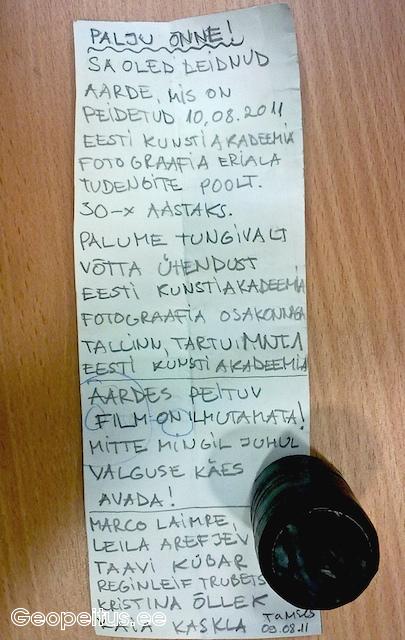 PALJU ÕNNE!
SA OLED LEIDNUD
AARDE, MIS ON
PEIDETUD 10.08.2011
EESTI KUNSTIAKADEEMIA
FOTOGRAAFIA ERIALA
TUDENGITE POOLT.
30-X AASTAKS.
PALUME TUNGIVALT
VÕTTA ÜHENDUST
EESTI KUNSTIAKADEEMIA
FOTOGRAAFIA OSAKONNAGA
TALLINN, TARTU MNT 1
EESTI KUNSTIAKADEEMIA
AARDES PEITUV
FILM ON ILMUTAMATA!
MITTE MINGIL JUHUL
VALGUSE KÄES
AVADA!
MARCO LAIMRE,
LEILA AREFJEV
TAAVI KÜBAR
REGINLEIF TRUBETS
KRISTINA ÕLLEK
KASKLA
09.08.11
Geopeitus.ee